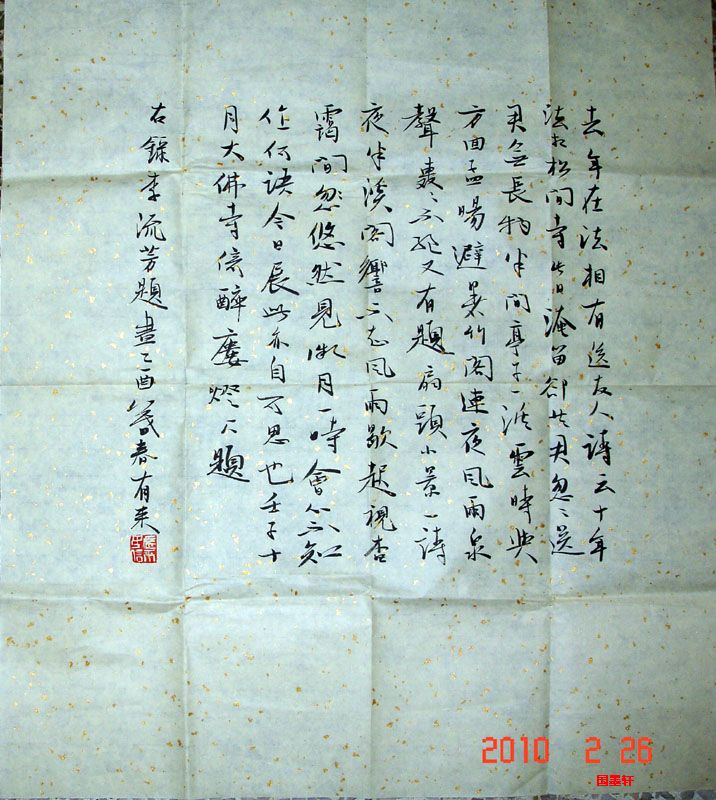 去年在法相有送友人詩云十年
法相松間寺此日淹留卻共君忽〻送
君無長物半間亭子一溪雲時與
方回孟暘避暑竹閣連夜風雨泉
聲轟〻不絕又有題扇頭小景一詩
夜半溪閣響不知風雨歇起視杳
靄間忽悠然見微月一時會心不知
作何語今日展此亦自可思也壬子十
月大佛寺倚醉樓燈下題
右錄李流芳題畫乙酉暮春有来
2010 2 26
国墨轩